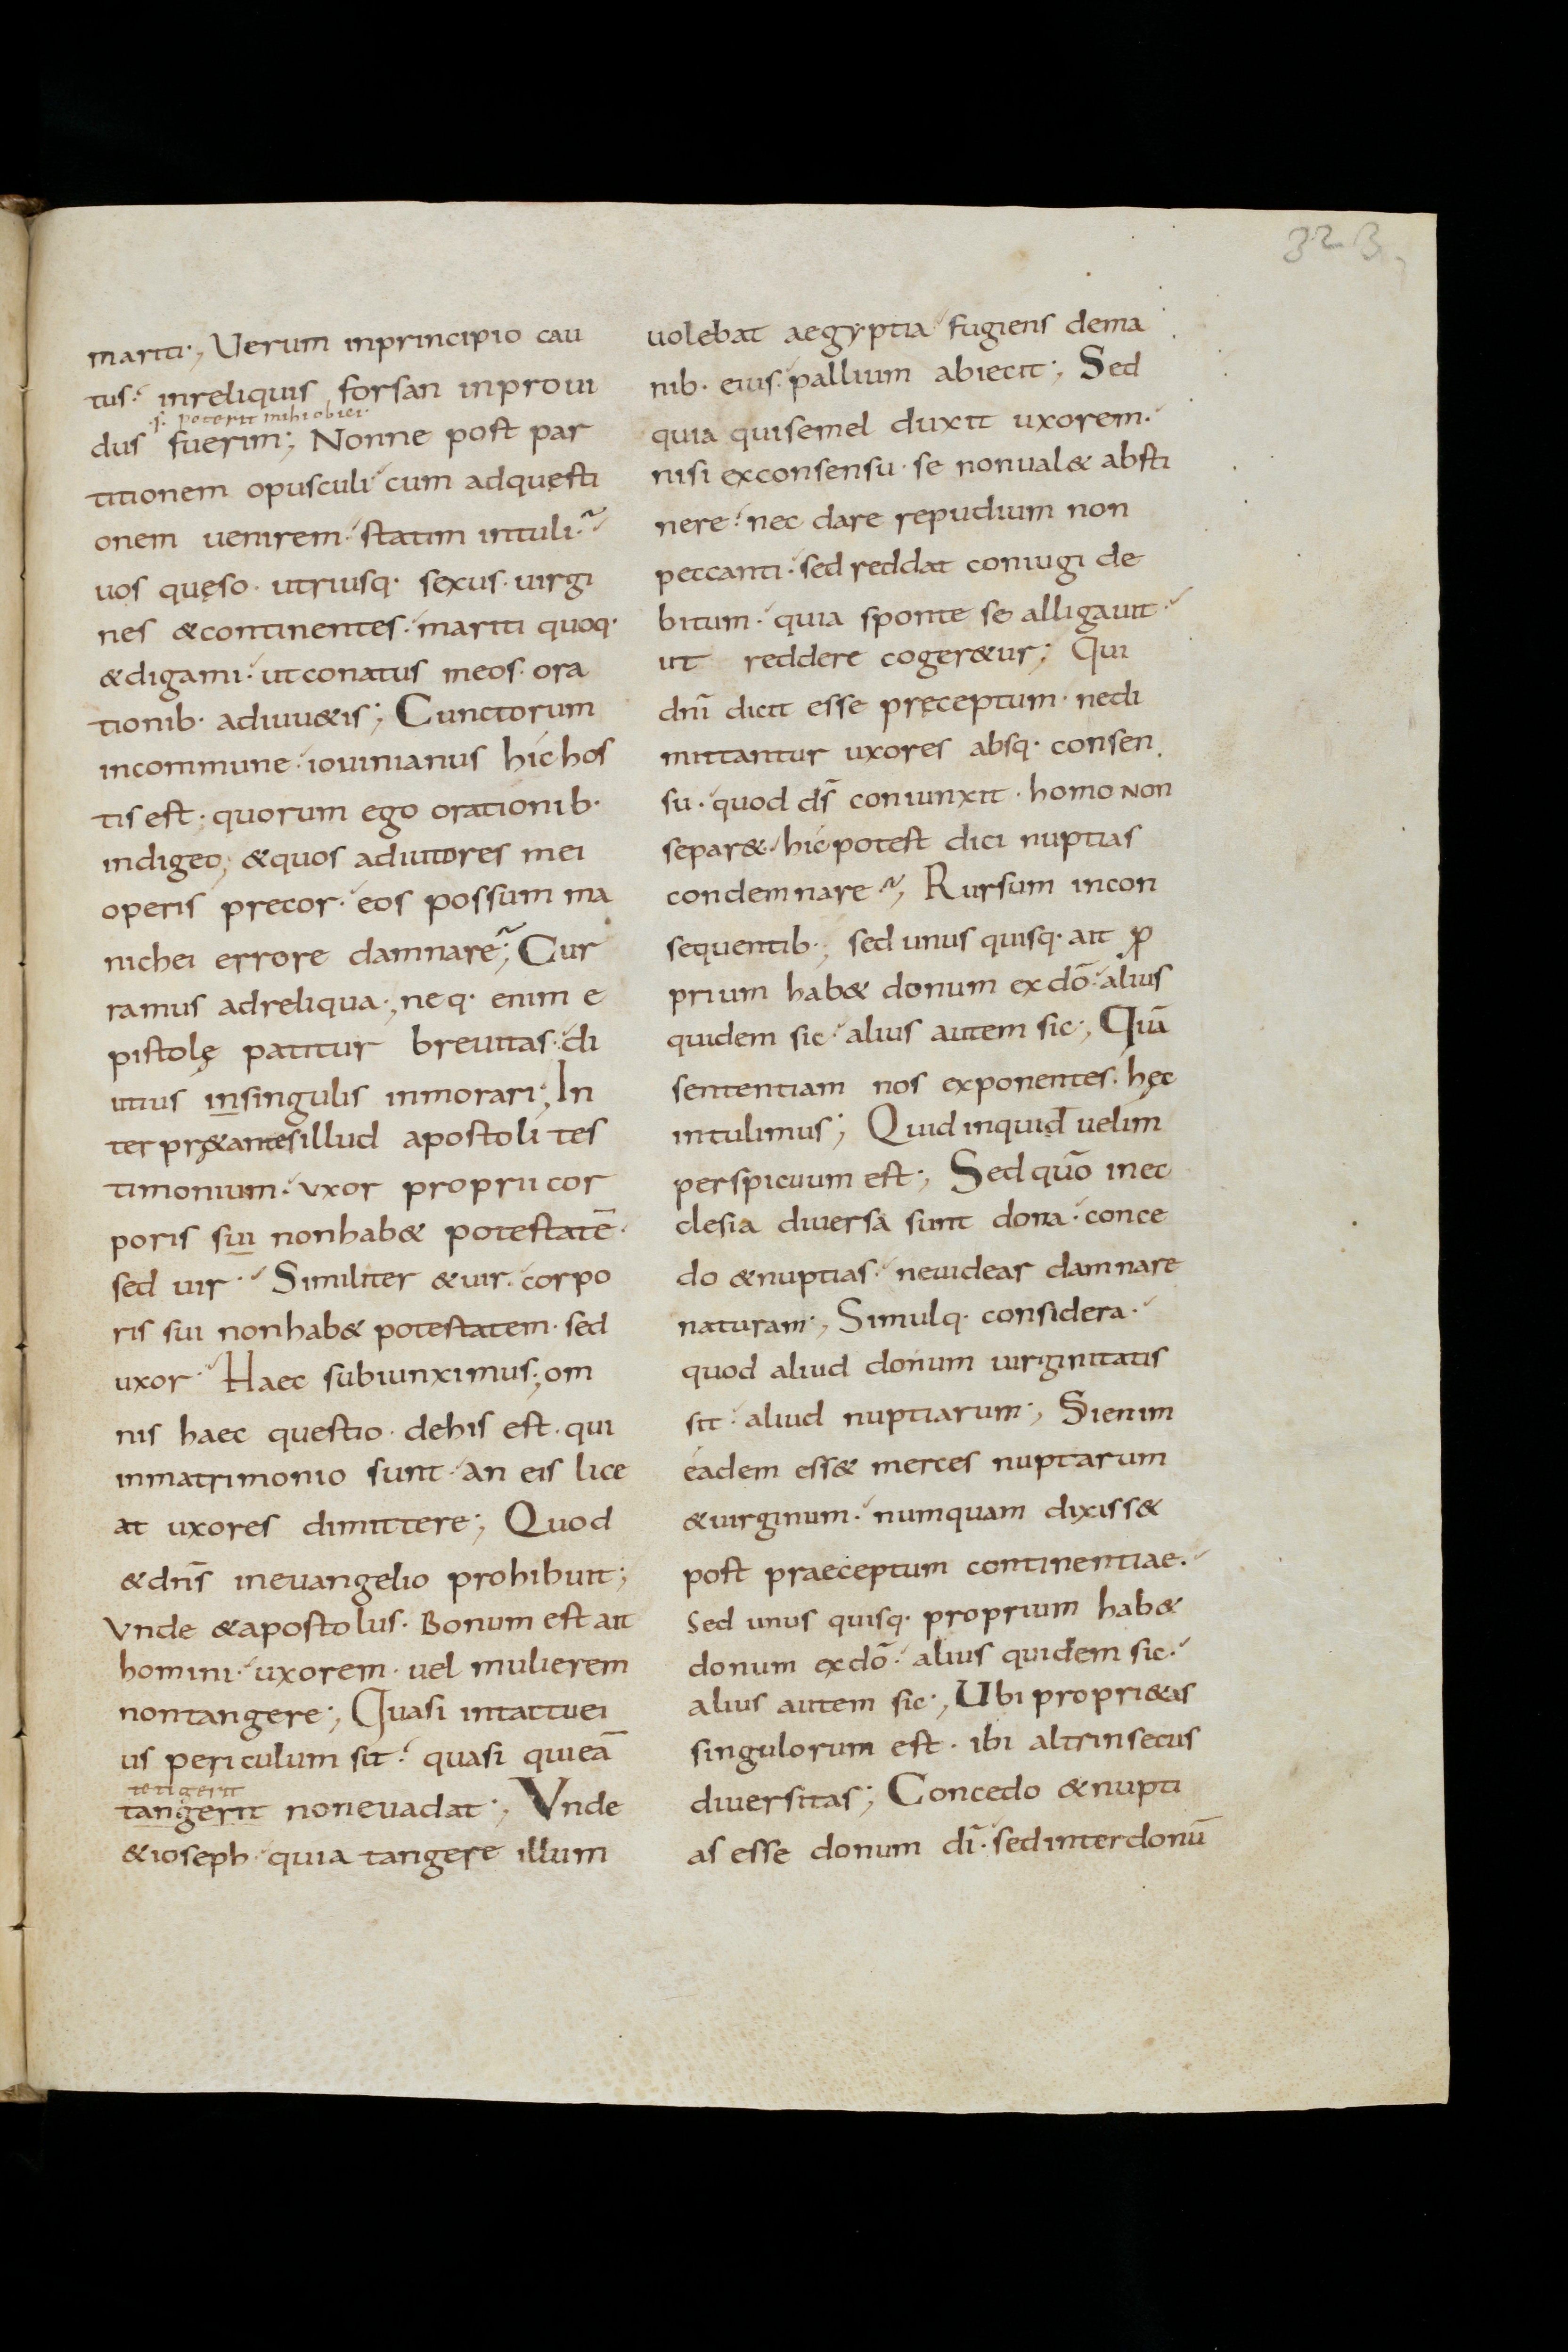 323
mariti·, Uerum inprincipio cau
tus· inreliquis forsan inproui
·s· poterit mihi obici·
dus fuerim; Nonne post par
titionem opusculi cum adquęsti
onem uenirem· statim intuli·
uos quęso· utriusq· sexus· uirgi
nes &continentes· mariti quoq·
&digami· utconatus meos· ora
tionib· adiuu&is; Cunctorum
incommune· iouinianus hic hos
tis est· quorum ego orationib·
indigeo; &quos adiutores mei
operis precor· eos possum ma
nichei errore damnare; Cur
ramus adreliqua·, neq· enim e
pistolę patitur breuitas· di
utius insingulis inmorari; In
terpr&antes illud apostoli tes
timonium· uxor proprii cor
poris sui nonhab& potestatē·
sed uir· Similiter &uir· corpo
ris sui nonhab& potestatem· sed
uxor· Haec subiunximus; om
nis haec questio· dehis est· qui
inmatrimonio sunt· an eis lice
at uxores dimittere; Quod
&dn̄s ineuangelio prohibuit;
Vnde &apostolus· Bonum est ait
homini· uxorem· uel mulierem
nontangere; Quasi intactu ei
us periculum sit· quasi quieā
tetigerit
tangerit noneuadat·, Vnde
&ioseph· quia tangere illum
uolebat aegyptia fugiens dema
nib· eius· pallium abiecit; Sed
quia quisemel duxit uxorem·
nisi exconsensu· se nonual& absti
nere· nec dare repudium non
peccanti· sed reddat coniugi de
bitum· quia sponte se alligauit·
ut reddere coger&ur; Qui
dn̄i dicit esse pręceptum· nedi
mittantur uxores absq· consen
su· quod ds̄ coniunxit· homo non
separ&· hic potest dici nuptias
condemnare; Rursum incon
sequentib·, sed unus quisq· ait ꝓ
prium hab& donum exdō· alius
quidem sic· alius autem sic·, Quā
sententiam nos exponentes· hęc
intulimus; Quid inquid uelim
perspicuum est; Sed quō inec
clesia diuersa sunt dona· conce
do &nuptias· neuidear damnare
naturam·, Simulq· considera·
quod aliud donum uirginitatis
sit· aliud nuptiarum·, Sienim
eadem ess& merces nuptarum
&uirginum· numquam dixiss&
post praeceptum continentiae·
Sed unus quisq· proprium hab&
donum exdō· alius quidem sic·
alius autem sic·, Ubi propri&as
singulorum est· ibi altrinsecus
diuersitas; Concedo &nupti
as esse donum dī· sedinterdonū